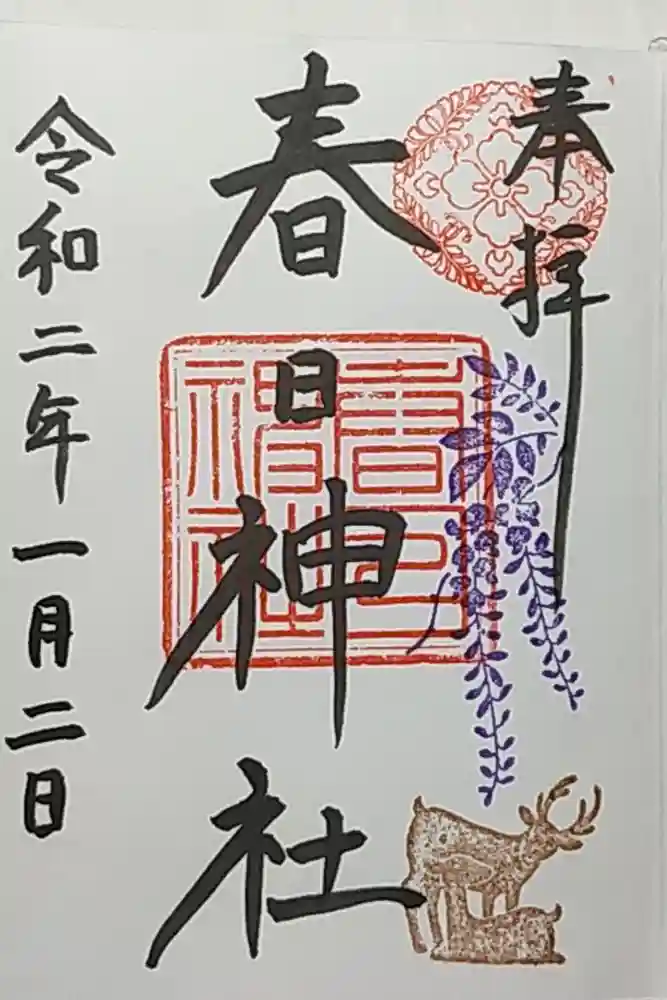 奉拝
春日神社
春日神社
令和二年一月二日